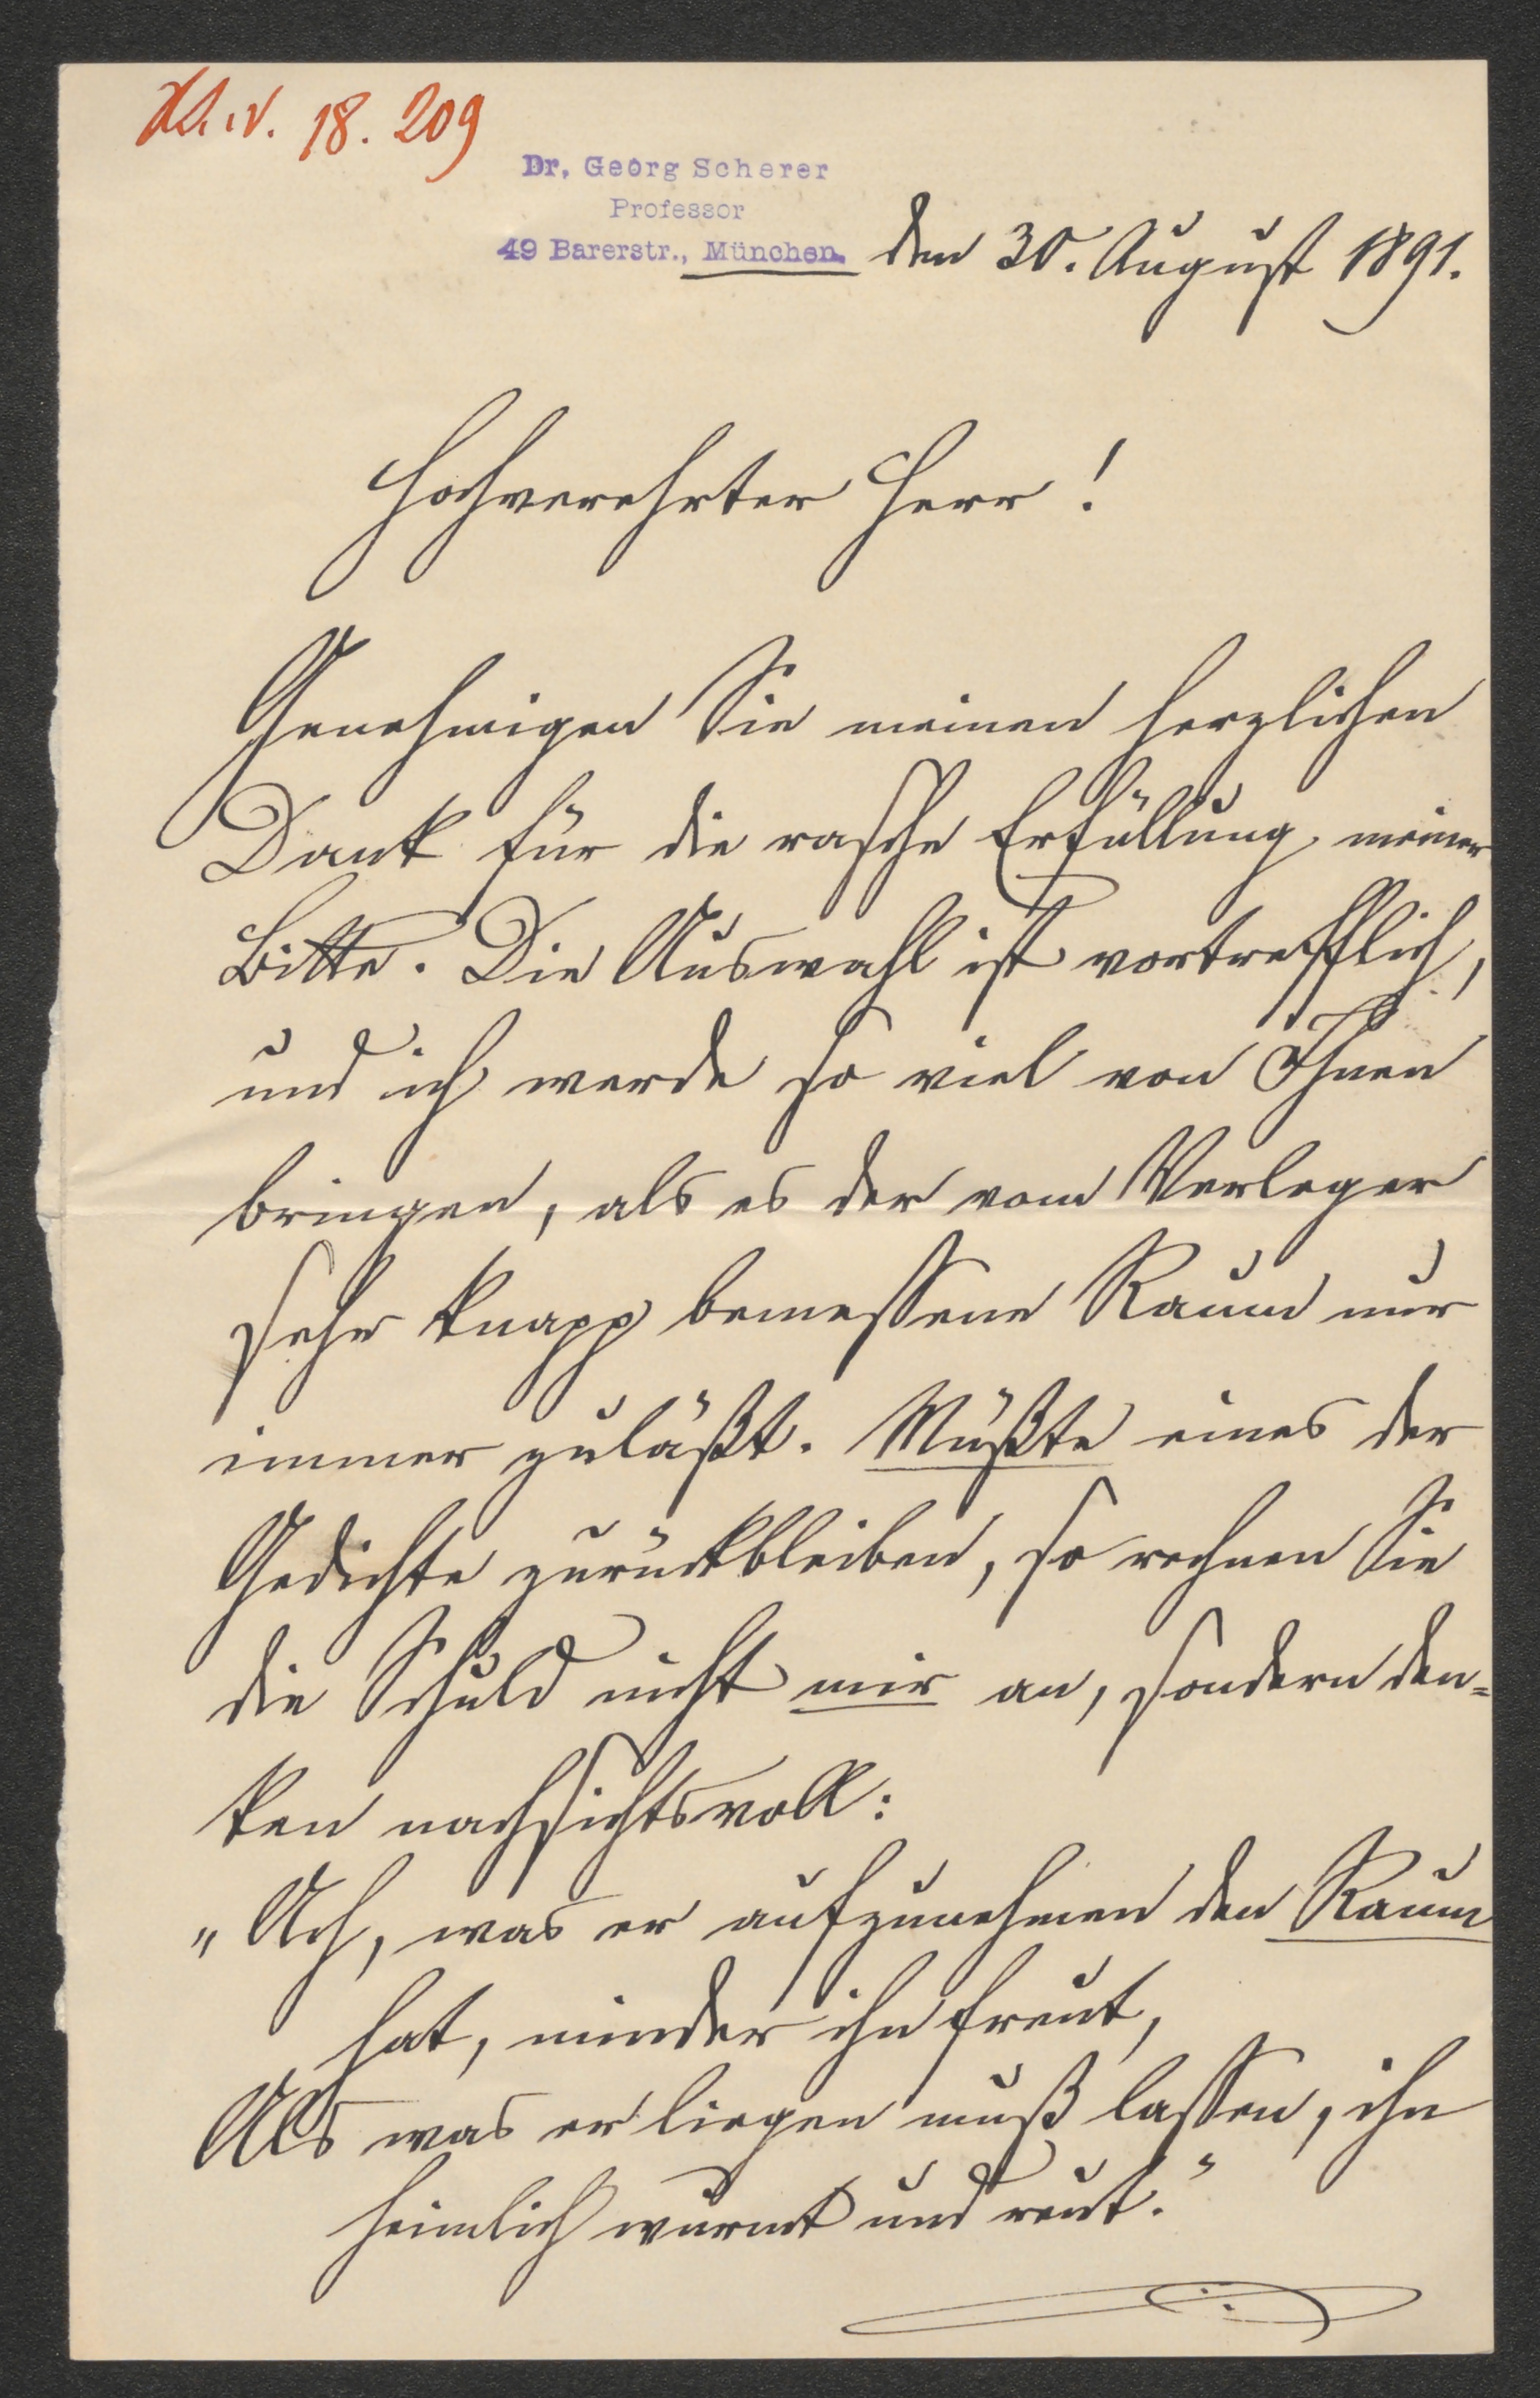 18. 209
Dr. Georg Scherer
Professor
49 Barerstr., München. den 30. August 1891.
Hochverehrter Herr!
Genehmigen Sie meinen herzlichen
Dank für die rasche Erfüllung meiner
Bitte. Die Auswahl ist vortrefflich,
und ich werde so viel von Ihnen
bringen, als es der vom Verleger
sehr knapp bemessene Raum nur
immer zuläßt. Müßte eines der
Gedichte zurückbleiben, so rechnen Sie
die Schuld nicht mir an, sondern den=
ken nachsichtsvoll:
„Ach, was er aufzunehmen den Raum
hat, minder ihn freut,
Als was er liegen muß lassen, ihn
heimlich wurmt und reut."